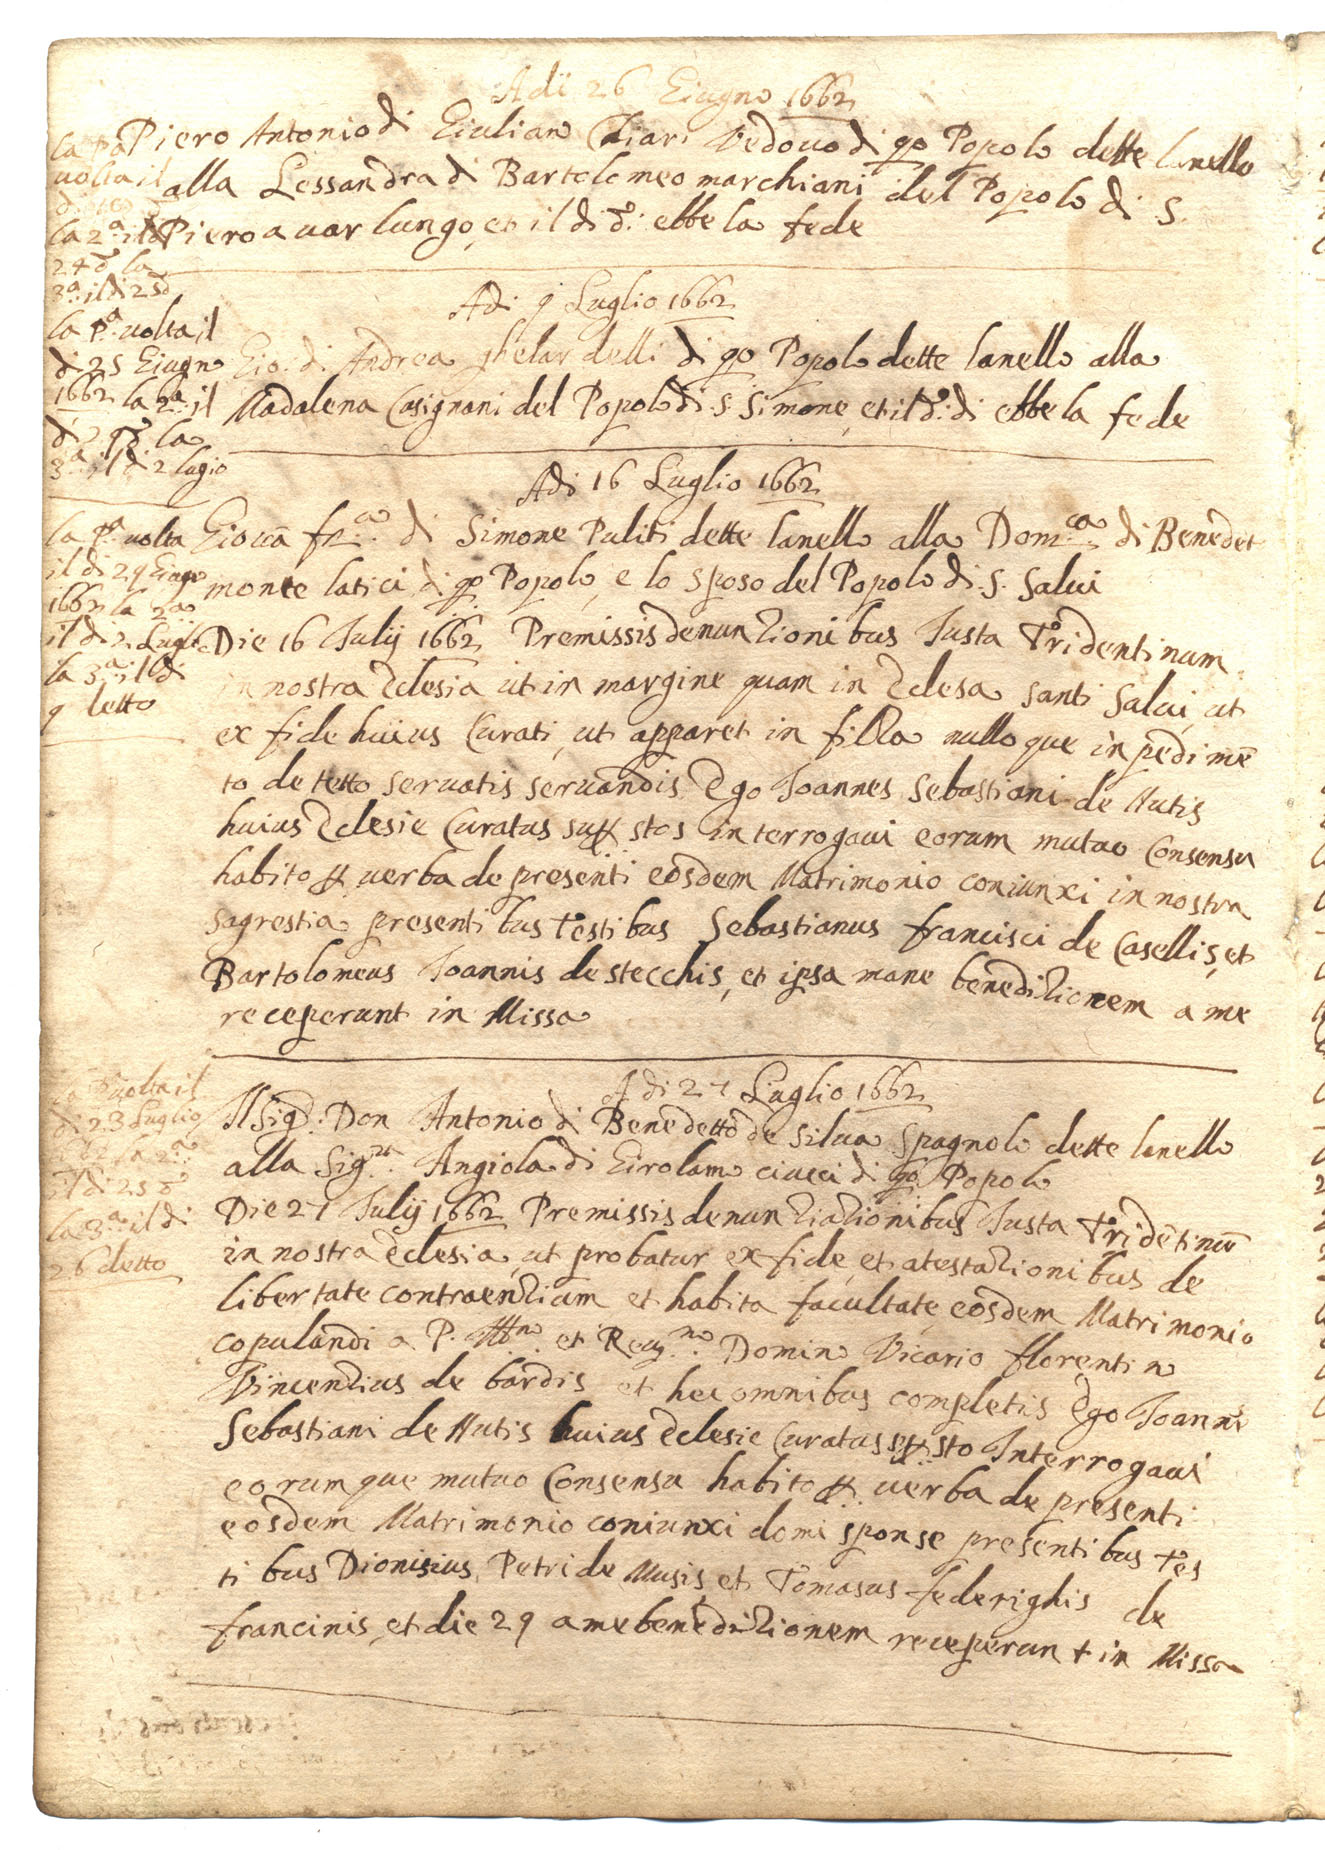 Adi 26 Giugno 1662
Piero Antonio di Giulian Chiari Vedovo di qo Popolo dette lanello
alla Lessandra di Bartolomeo marchiani del Popolo di S.
Piero a uarlungo, et il di do: ebbe la fede
la pa
uolta il
la 2a il di
24 do la
3a: il di 25 do
Adi 9 Luglio 1662
Gio: di Andrea ghelardelli di qo Popolo dette lanello alla
Madalena Casignani del Popolo di S. Simone, et il do: di ebbe la fede
la pa: uolta il
di 25 Giugn
1662 la 2a: il
la
3a: il di 2 lugio
Adi 16 Luglio 1662
Giouā frca: di Simone Puliti dette lanello alla Domca: di Benedet
monte latici di qo Popolo, e lo sposo del Popolo di S. Salui
Die 16 Julij 1662 Premissis denuntionibus Justa Tridentinum
in nostra Eclesia ut in margine quam in Eclesa santi Salui, ut
ex fide huius Curati, ut apparet in filla nulloque inpedimē
to detetto seruatis seruandis Ego Joannes Sebastiani de Nutis
huius Eclesie Curatus supstos interrogaui eorum mutuo Consensu
habito p uerba de presenti eosdem Matrimonio coniunxi in nostra
sagrestia presentibus testibus Sebastianus francisci de Casellis, et
Bartolomeus Joannis de stecchis, et ipsa mane beneditionem a me
receperunt in Missa
la pa: uolta
il di 29 Giugo
1662 la 2a:
il di 2 Luglo
la 3a: il di
9 detto
Adi 27 Luglio 1662
Il Sigr: Don Antonio di Benedetto de silua spagnolo dette lanello
alla Sigra: Angiola di Girolamo ciucci di qo Popolo
Die 27 Julij 1662 Premissis denuntiationibus Justa Tridētinū
in nostra Eclesia, ut probatur ex fide, et atestationibus de
libertate contraentium et habita facultate eosdem Matrimonio
copulandi a P. Illmo: et Reuмо: Domino Vicario florentin
Vincentius de bardis et hec omnibus completis Ego Joanns
Sebastiani de Nutis huius Eclesie Curatus supsto Interrogaui
eorumque mutuo Consensu habito p uerba de presenti
eosdem Matrimonio coniunxi domi sponse presentibus tes
tibus Dionisius Petri de Musis, et Tomasus federighis de
francinis, et die 29 a me beneditionem receperunt in Missa
la pa uolta il
di 23 Luglio
la 2a:
il di 25 do
la 3a: il di
26 detto